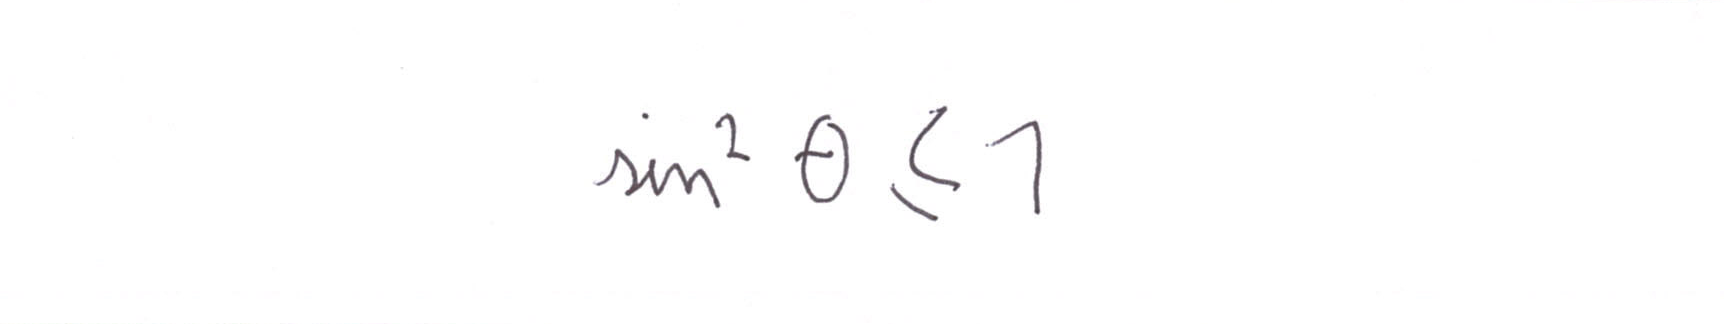 sin² θ ⩽ 1